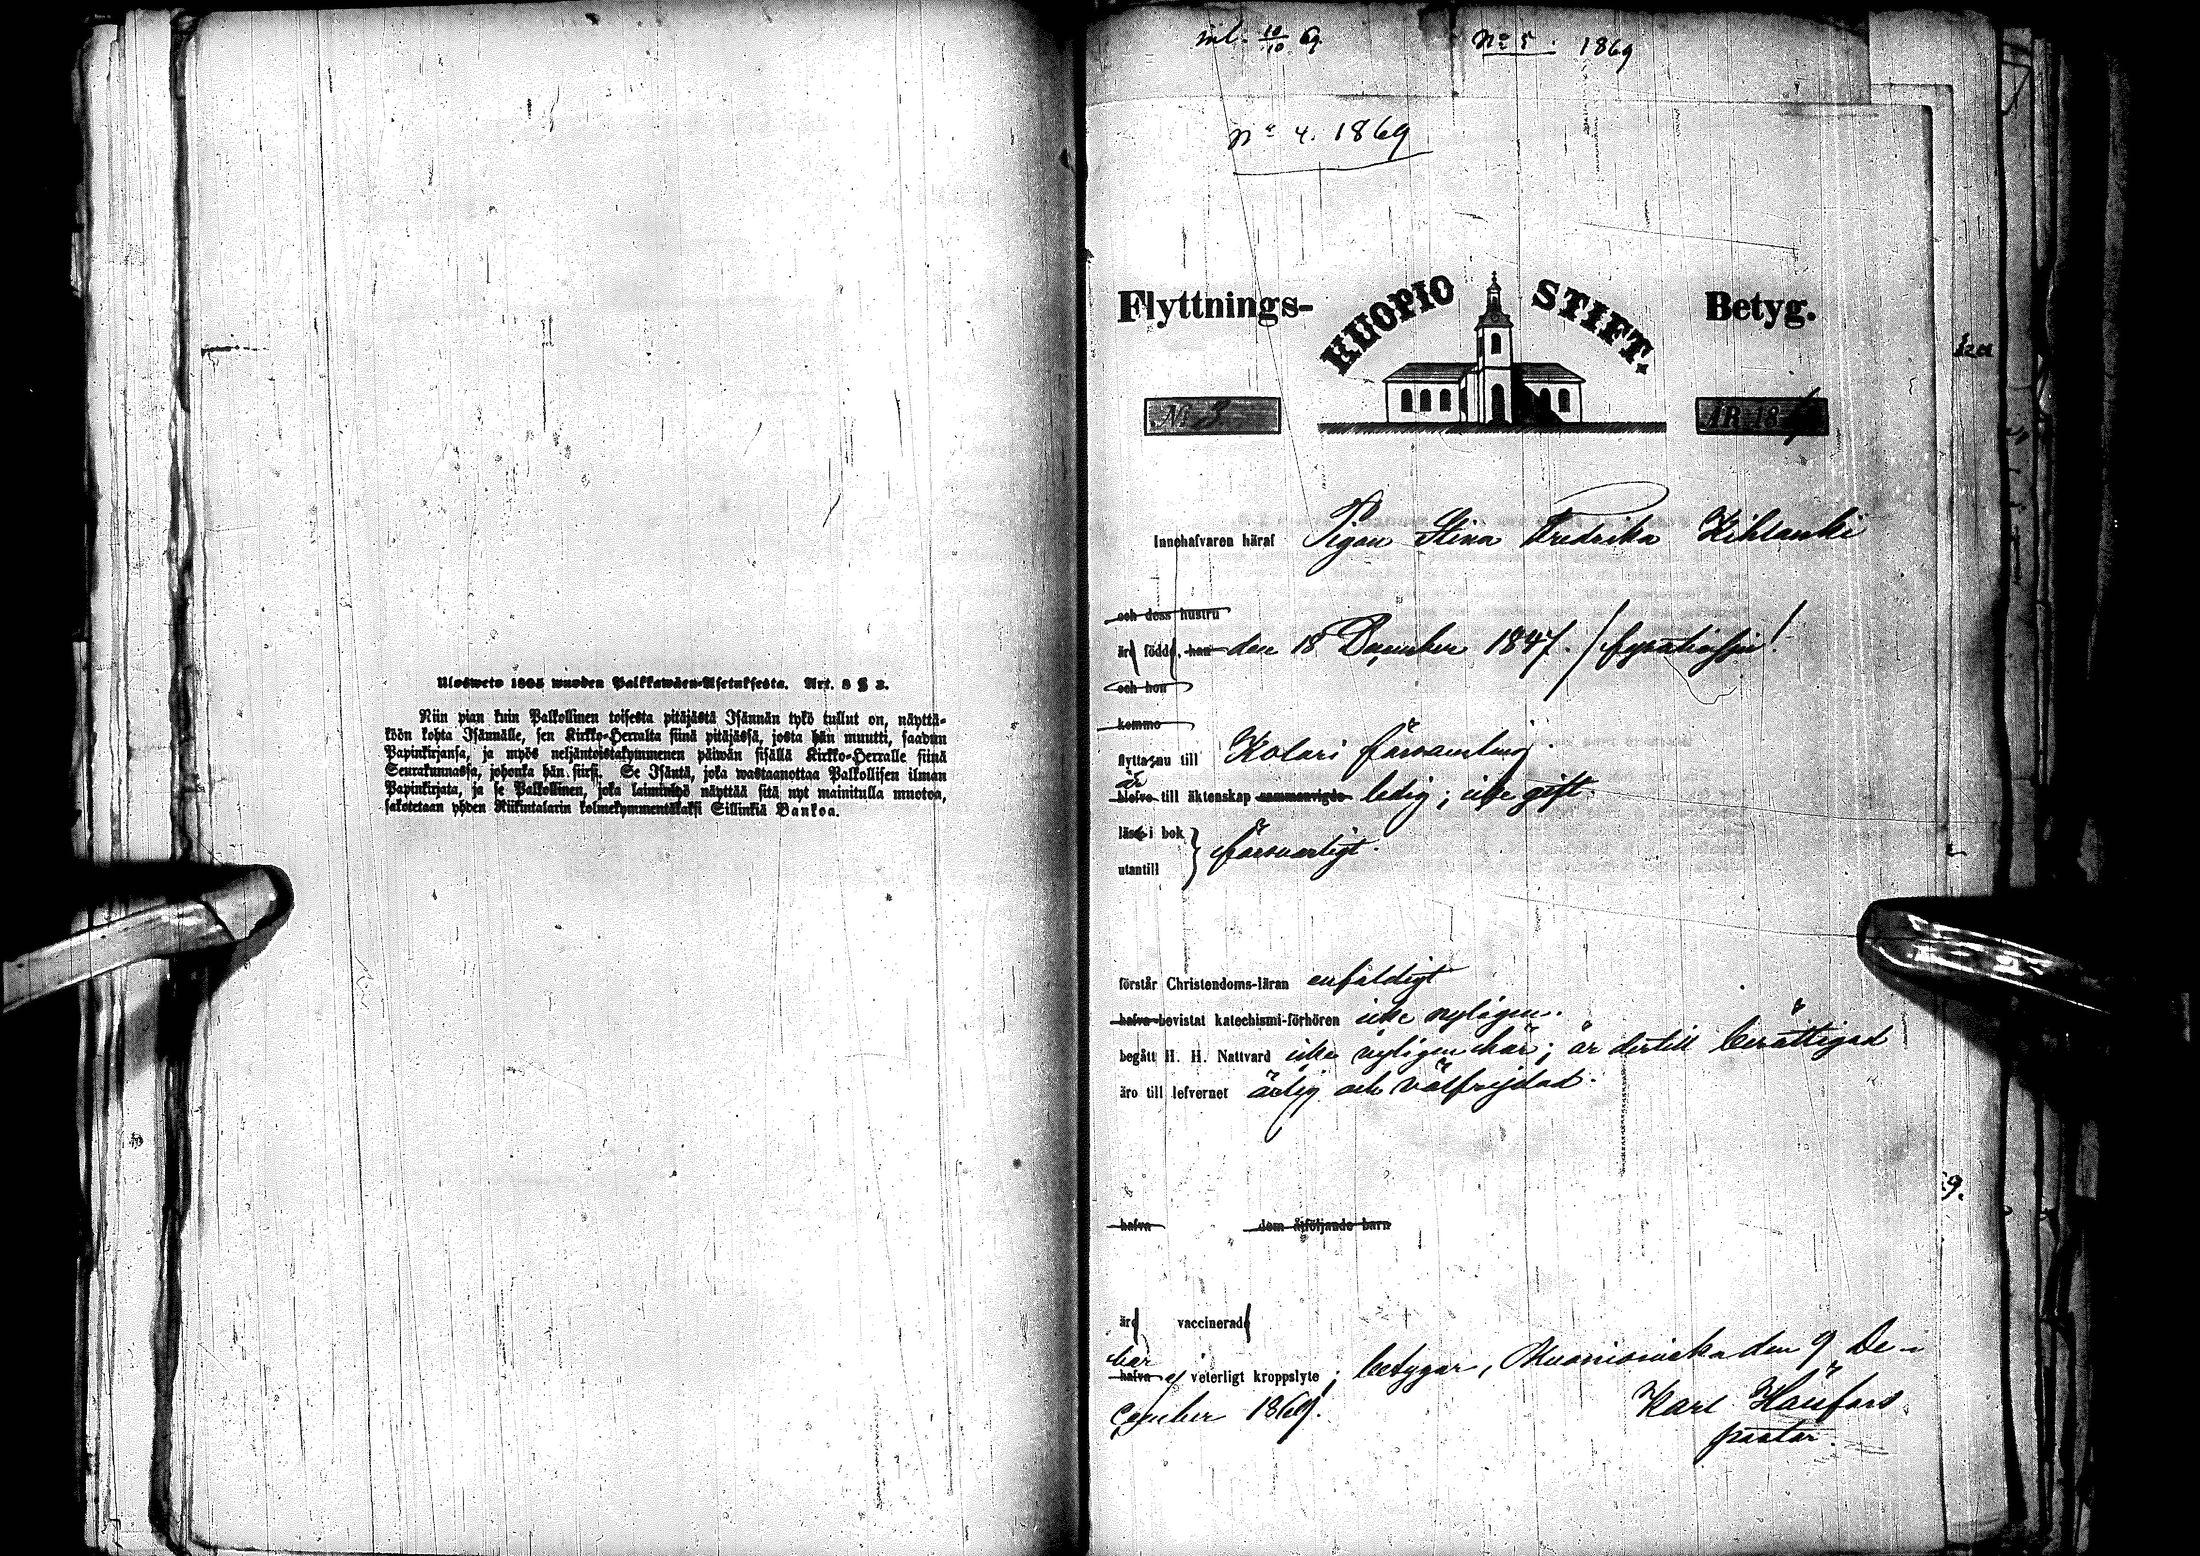 Ulosweto 1805 wuoden Palkkawäen-Asetuksesta. Art. 3 § 3.
Niin pian kuin Palkollinen toisesta pitäjästä Isännän tykö tullut on, näyttä-
köön kohta Isännälle, sen Kirkko-Herralta siinä pitäjässä, josta hän muutti, saadun
Papinkirjansa, ja myös neljäntoistakymmenen päiwän sisällä Kirkko-Herralle siinä
Seurakunnassa, johonka hän siirsi. Se Isäntä, joka wastaanottaa Palkollisen ilman
Papinkirjata, ja se Palkollinen, joka laiminlyö näyttää sitä nyt mainitulla muotoa,
sakotetaan yhden Riikintalarin kolmekymmentäkaksi Sillinkiä Bankoa.
inl. 10/10 69 No 5. 1869
No 4. 1869
Flyttnings- KUOPIO STIFT. Betyg.
No 3. ÅR 18
Innehafvaren häraf Pigan Stina Fredrika Kihlanki
och dess hustru
äro födde, han den 18 December 1847.
och hon
komme
flytta nu till Kolari församling.
är
blefvo till äktenskap sammanvigde ledig; icke gift.
läse i bok
försvarligt.
utantill
förstår Christendoms-läran enfaldigt
hafva bevistat katechismi-förhören icke nyligen.
begått H. H. Nattvard icke nyligen här; är dertill berättigad
äro till lefvernet ärlig och välfrejdad.
hafva dem åtföljande barn
äro vaccinerade
har
hafva ej veterligt kroppslyte; betygar, Muonioniska den 9 De-
cember 1869.
Karl Heikel
pastor.